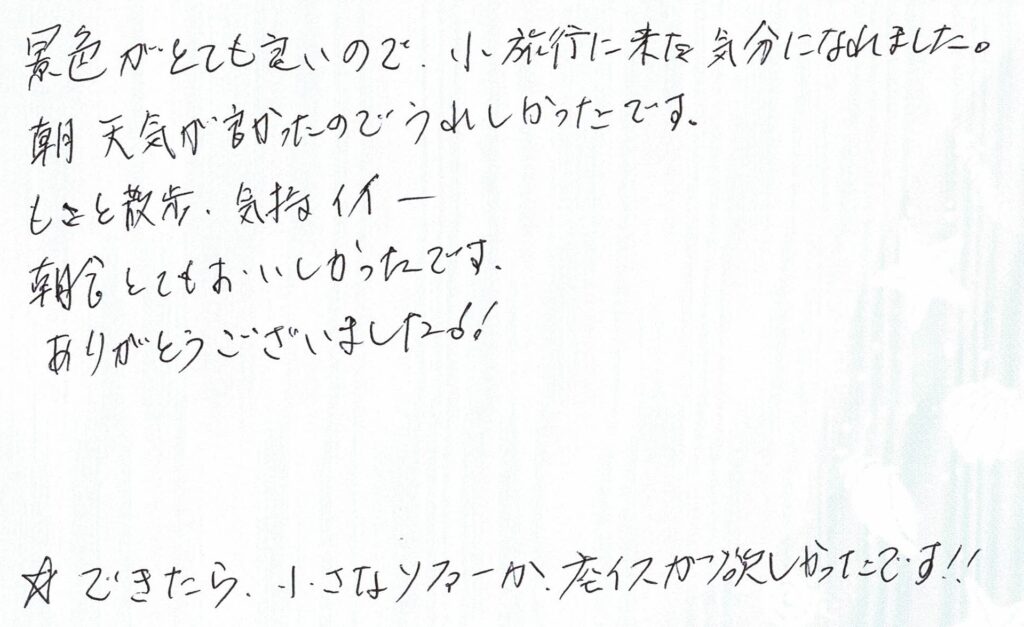 景色がとても良いので、小旅行に来た気分になれました。
朝 天気が良かったのでうれしかったです。
と散歩、気持イイー
朝食とてもおいしかったです。
ありがとうございました!!
☆できたら、小さなソファーか、座イスが欲しかったです!!